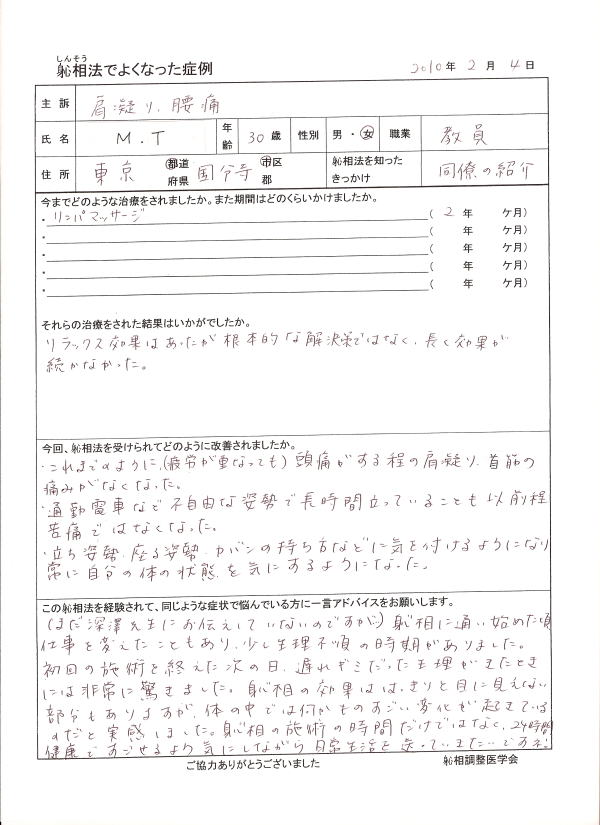 しんそう
躰相法でよくなった症例 2010年 2月 4日
主訴 肩凝り、腰痛
氏名 M.T 年齢 30歳 性別 男・女 職業 教員
住所 東京 都道府県 国分寺 市区郡 躰相法を知ったきっかけ 同僚の紹介
今までどのような治療をされましたか。また期間はどのくらいかけましたか。
・リンパマッサージ ( 2 年 ケ月)
・ ( 年 ケ月)
・ ( 年 ケ月)
・ ( 年 ケ月)
・ ( 年 ケ月)
それらの治療をされた結果はいかがでしたか。
リラックス効果はあったが根本的な解決策ではなく、長く効果が
続かなかった。
今回、躰相法を受けられてどのように改善されましたか。
・これまでのように、(疲労が重なっても)頭痛がする程の肩凝り、首筋の
痛みがなくなった。
・通勤電車など不自由な姿勢で長時間立っていることも以前程
苦痛ではなくなった。
・立ち姿勢、座る姿勢、カバンの持ち方などに気を付けるようになり
常に自分の体の状態を気にするようになった。
この躰相法を経験されて、同じような症状で悩んでいる方に一言アドバイスをお願いします。
(まだ深澤先生にお伝えしていないのですが)躰相に通い始めた頃
仕事を変えたこともあり、少し生理不順の時期がありました。
初回の施術を終えた次の日、遅れギミだった生理がきたとき
には非常に驚きました。躰相の効果ははっきりと目に見えない
部分もありますが、体の中では何かものすごい変化が起きている
のだと実感しました。躰相の施術の時間だけではなく、24時間
健康ですごせるよう気にしながら日常生活を送っていきたいですネ!
ご協力ありがとうございました 躰相調整医学会